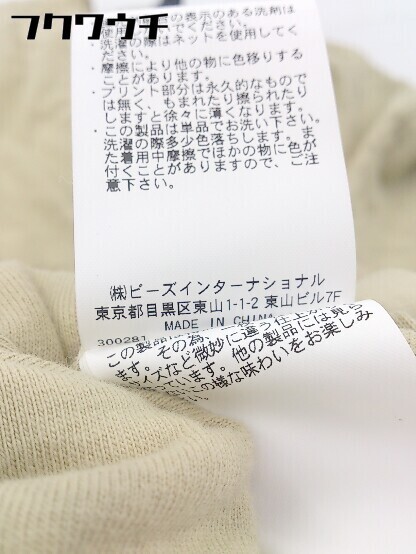 フクワウチ
の表示のある洗剤は
使用
ください。
・洗濯の際はネットを使用してく
ださい。
・摩擦により他の物に色移りする
ことがあります。
・プリント部分は永久的なもので
は無く、もまれたり擦られたり
しますと徐々に薄くなります。
・この製品は単品でお洗い下さい。
洗濯の際多少色落ちします。ま
た着用中摩擦でほかの物に色が
付くことがありますので、ご注
意下さい。
㈱ビーズインターナショナル
東京都目黒区東山1-1-2 東山ビル7F
MADE IN CHINA
300281
この製品
ます。その為、
イズなど微妙に違う仕上が
っています。他の製品には見ら
の様な味わいをお楽しみ